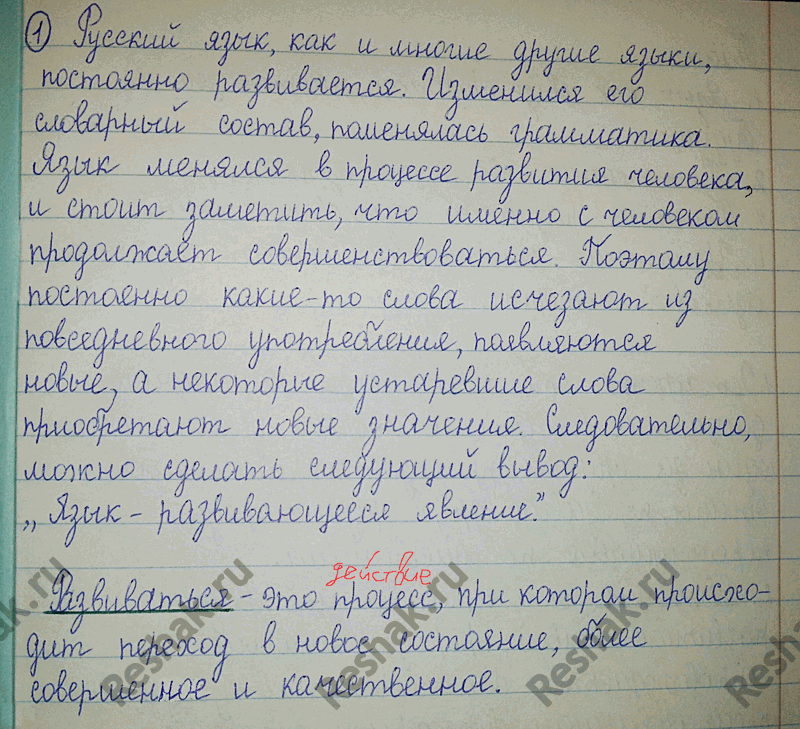 ① Русский язык, как и многие другие языки,
постоянно развивается. Изменился его
словарный состав, поменялась грамматика.
Язык менялся в процессе развития человека,
и стоит заметить, что именно с человеком
продолжает совершенствоваться. Поэтому
постоянно какие-то слова исчезают из
повседневного употребления, появляются
новые, а некоторые устаревшие слова
приобретают новые значения. Следовательно,
можно сделать следующий вывод:
„Язык - развивающееся явление."
действие
Развиваться - это процесс, при котором происхо-
дит переход в новое состояние, более
совершенное и качественное.
Reshak.ru
Reshak.ru
Reshak.ru
Reshak.ru